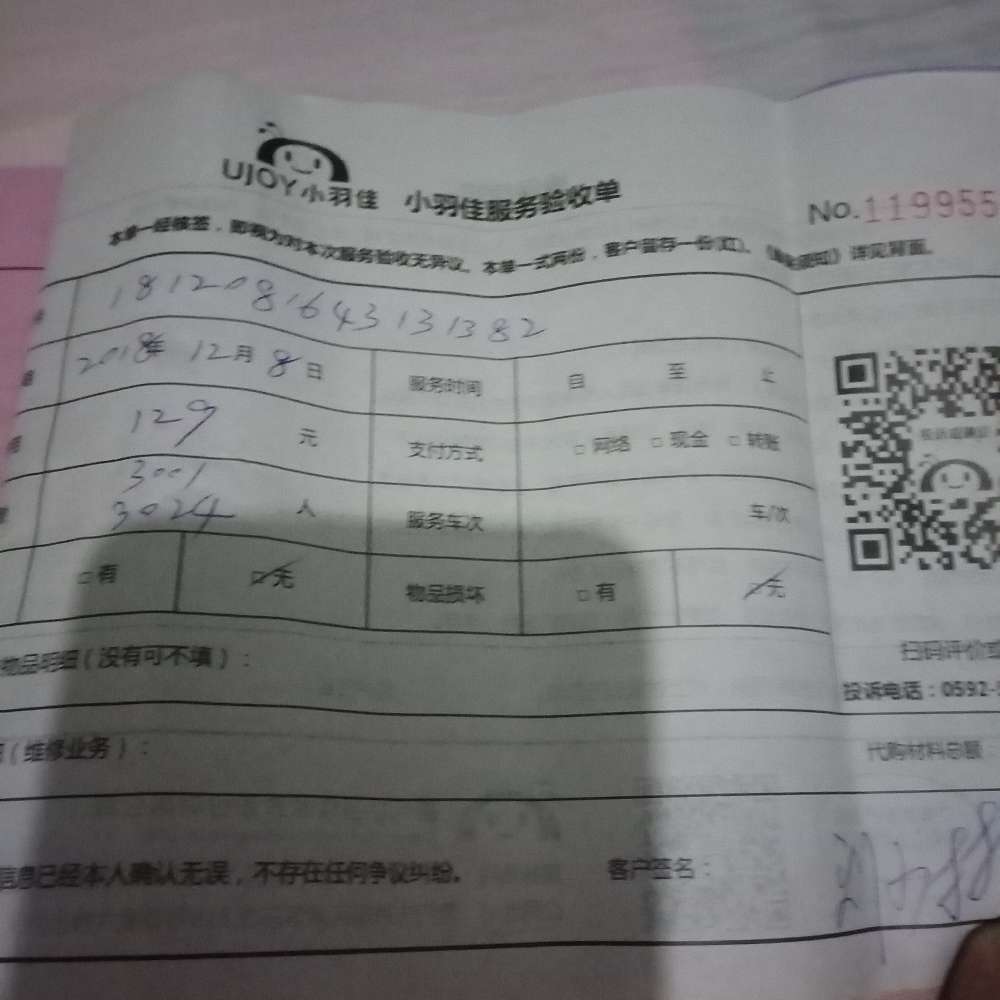 UJOY小羽佳 小羽佳服务验收单
No.119955
本单一经核签，即视为对本次服务验收无异议。本单一式两份，客户留存一份(红)。《须知》详见背面。
18120816431 31382
2018年 12月 8日 服务时间 自 至 止
129 元 支付方式 □网络 □现金 □转账
3001
3024 人 服务车次 车/次
□有 □无 物品损坏 □有 □无
扫码评价或
物品明细(没有可不填)：
投诉电话：0592-
(维修业务)：
代购材料总额：
信息已经本人确认无误，不存在任何争议纠纷。 客户签名：